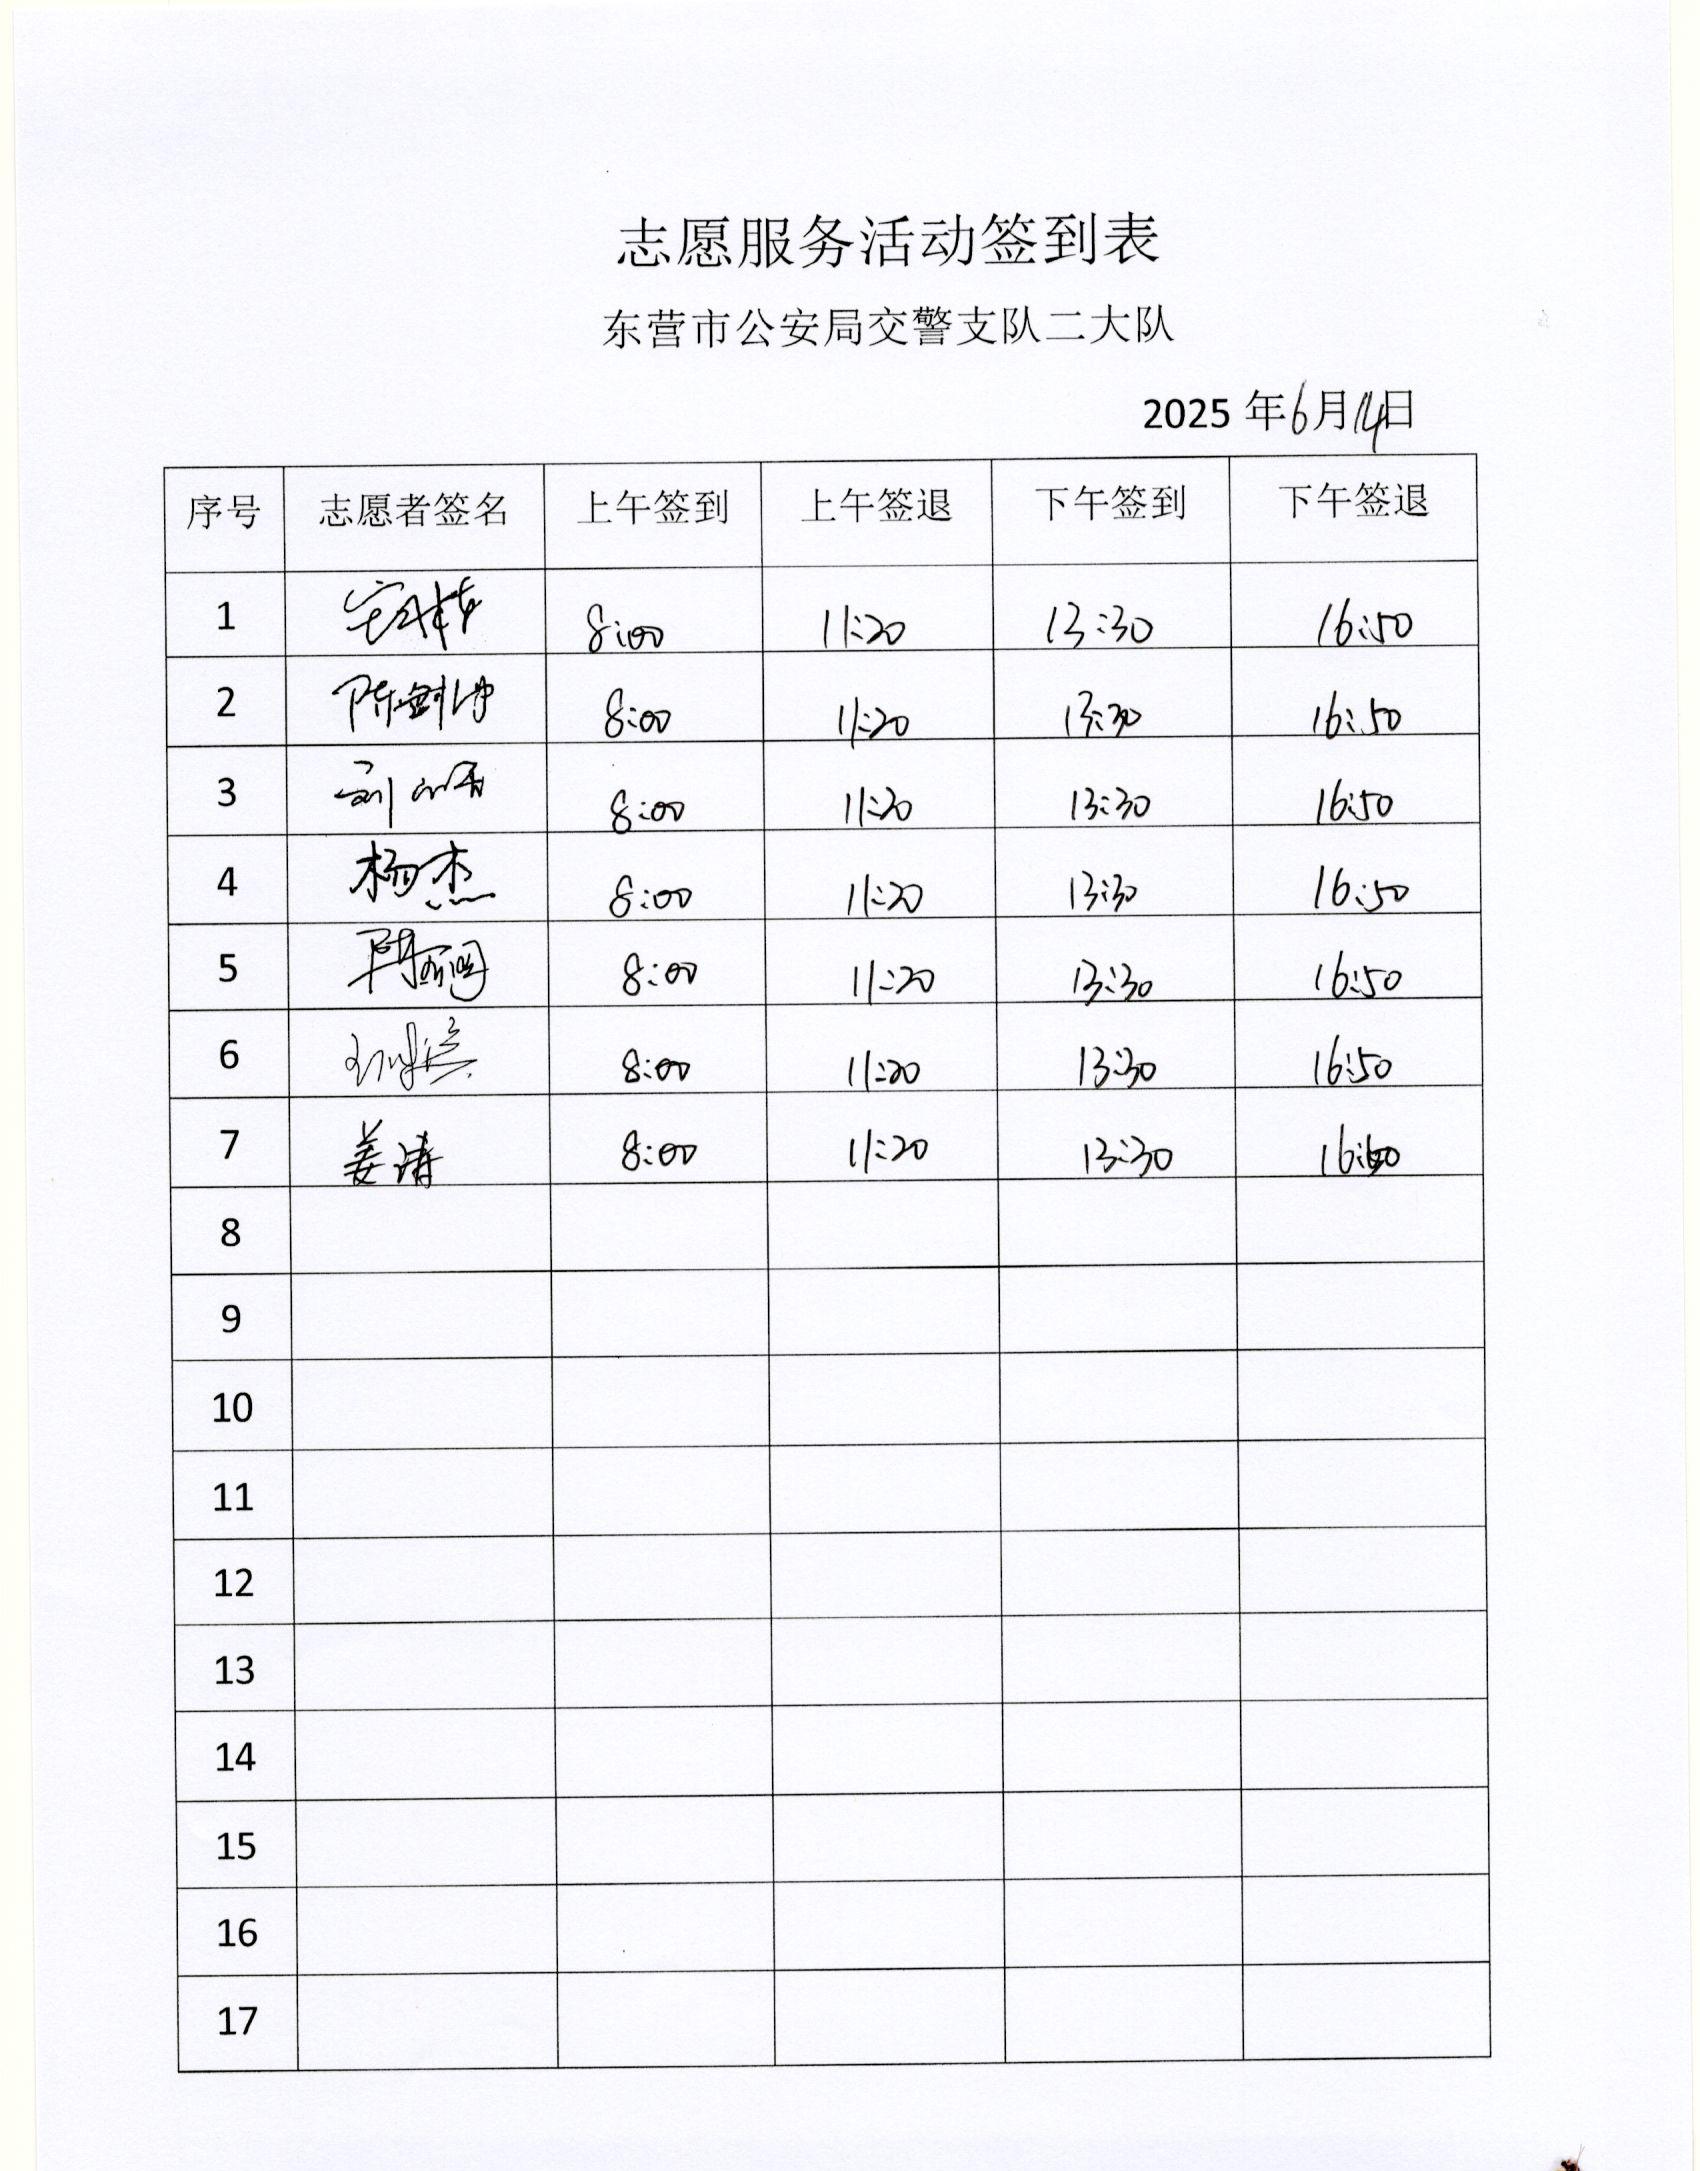 志愿服务活动签到表
东营市公安局交警支队二大队
2025 年6月14日
序号 志愿者签名 上午签到 上午签退 下午签到 下午签退
1 8:00 11:20 13:30 16:50
2 陈剑 8:00 11:20 13:30 16:50
3 刘 8:00 11:20 13:30 16:50
4 杨杰 8:00 11:20 13:30 16:50
5 8:00 11:20 13:30 16:50
6 8:00 11:20 13:30 16:50
7 姜涛 8:00 11:20 13:30 16:50
8
9
10
11
12
13
14
15
16
17